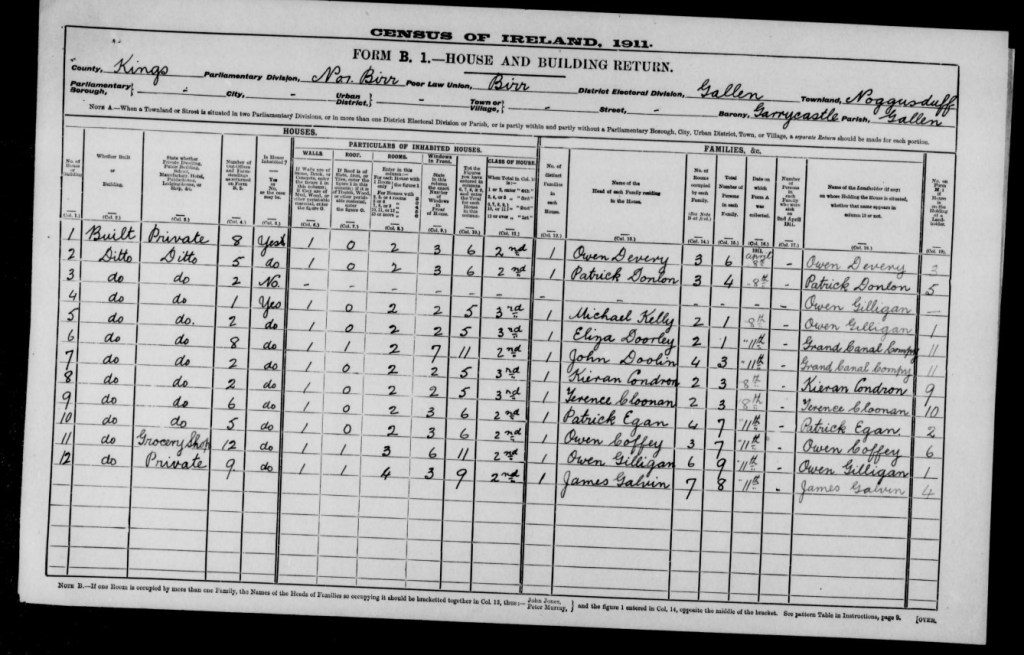 CENSUS OF IRELAND, 1911.
FORM B. 1.—HOUSE AND BUILDING RETURN.
County, Kings Parliamentary Division, Nor. Birr Poor Law Union, Birr District Electoral Division, Gallen Townland, Noggusduff
Parliamentary Borough, - City, - Urban District, - Town or Village, - Street, - Barony, Garrycastle Parish, Gallen
NOTE A—When a Townland or Street is situated in two Parliamentary Divisions, or in more than one District Electoral Division or Parish, or is partly within and partly without a Parliamentary Borough, City, Urban District, Town, or Village, a separate Return should be made for each portion.
HOUSES. FAMILIES, &c.
PARTICULARS OF INHABITED HOUSES.
WALLS. ROOF. ROOMS. Windows in Front. CLASS OF HOUSE.
No. of House or Building Whether Built or Building. In House Inhabited? Yes or No, as the case may be. No. of distinct Families in each House. Name of the Head of each Family residing in the House. No. of Rooms occupied by each Family. Total Number of Persons in each Family. Date on which Form A was collected. Name of the Landholder (if any) on whose Holding the House is situated, whether that name appears in column 13 or not.
(Col. 1.) (Col. 2.) (Col. 3.) (Col. 4.) (Col. 5.) (Col. 6.) (Col. 7.) (Col. 8.) (Col. 9.) (Col. 10.) (Col. 11.) (Col. 12.) (Col. 13.) (Col. 14.) (Col. 15.) (Col. 16.) (Col. 17.) (Col. 18.) (Col. 19.)
1 Built Private 8 Yes 1 0 2 3 6 2nd 1 Owen Devery 3 6 1911, April 8th - Owen Devery 3
2 Ditto Ditto 5 do 1 0 2 3 6 2nd 1 Patrick Donlon 3 4 8th - Patrick Donlon 5
3 do do 2 No. - - - - - - - - - - - - Owen Gilligan -
4 do do 1 Yes 1 0 2 2 5 3rd 1 Michael Kelly 2 1 8th - Owen Gilligan 1
5 do do. 2 do 1 0 2 2 5 3rd 1 Eliza Doorley 2 1 11th - Grand Canal Compy 11
6 do do 8 do 1 1 2 7 11 2nd 1 John Doolin 4 3 11th - Grand Canal Compy 11
7 do do 2 do 1 0 2 2 5 3rd 1 Kieran Condron 2 3 8th - Kieran Condron 9
8 do do 2 do 1 0 2 2 5 3rd 1 Terence Cloonan 2 3 8th - Terence Cloonan 10
9 do do 6 do 1 0 2 3 6 2nd 1 Patrick Egan 4 7 11th - Patrick Egan 2
10 do do 5 do 1 0 2 3 6 2nd 1 Owen Coffey 3 7 11th - Owen Coffey 6
11 do Grocery Shop 12 do 1 1 3 6 11 2nd 1 Owen Gilligan 6 9 11th - Owen Gilligan 1
12 do Private 9 do 1 1 4 3 9 2nd 1 James Galvin 7 8 11th - James Galvin 4
NOTE B.—If one Room is occupied by more than one Family, the Names of the Heads of Families so occupying it should be bracketted together in Col. 13, thus:— John Jones, Peter Murray, } and the figure 1 entered in Col. 14, opposite the middle of the bracket. See pattern Table in Instructions, page 9. [OVER.